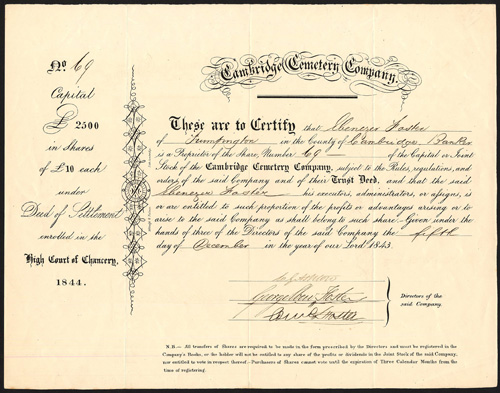 No. 69
Capital
£ 2500
in Shares
of £10 each
under
Deed of Settlement
enrolled in the
High Court of Chancery,
1844.
Cambridge Cemetery Company.
These are to Certify that Ebenezer Foster
of Trumpington in the County of Cambridge Banker
is a Proprietor of the Share, Number 69 of the Capital or Joint
Stock of the Cambridge Cemetery Company, subject to the Rules, regulations, and
orders of the said Company and of their Trust Deed, and that the said
Ebenezer Foster his executors, administrators, or assigns, is
or are entitled to such proportion of the profits or advantages arising or to
arise to the said Company as shall belong to such share. Given under the
hands of three of the Directors of the said Company the fifth
day of December in the year of our Lord 1843.
George Foster
Directors of the
said Company.
N.B.— All transfers of Shares are required to be made in the form prescribed by the Directors and must be registered in the
Company's Books, or the holder will not be entitled to any share of the profits or dividends in the Joint Stock of the said Company,
nor entitled to vote in respect thereof.—Purchasers of Shares cannot vote until the expiration of Three Calendar Months from the
time of registering.